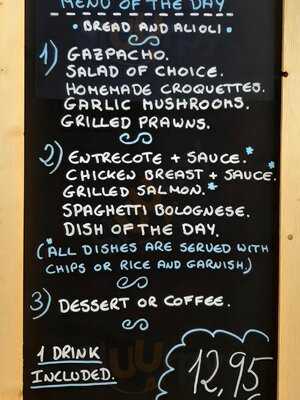 MENU OF THE DAY
• BREAD AND ALIOLI •
1) GAZPACHO.
SALAD OF CHOICE.
HOMEMADE CROQUETTES.
GARLIC MUSHROOMS.
GRILLED PRAWNS.
2) ENTRECOTE + SAUCE.*
CHICKEN BREAST + SAUCE*
GRILLED SALMON.*
SPAGHETTI BOLOGNESE.
DISH OF THE DAY.
(*ALL DISHES ARE SERVED WITH
CHIPS OR RICE AND GARNISH.)
3) DESSERT OR COFFEE.
1 DRINK
INCLUDED.
12,95